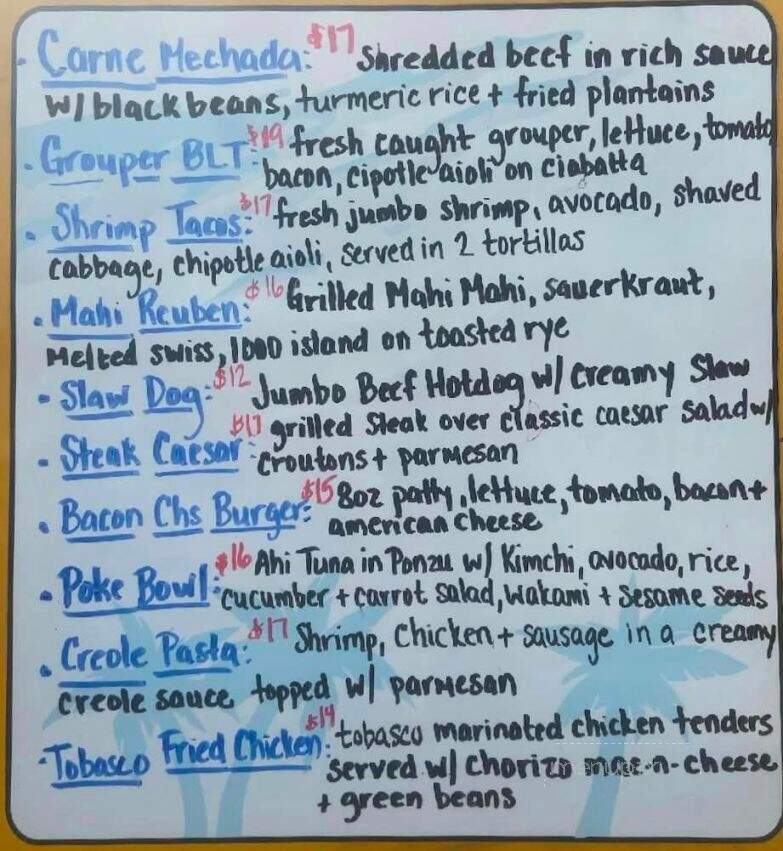 · Carne Mechada: $17 Shredded beef in rich sauce
w/ black beans, turmeric rice + fried plantains
· Grouper BLT: $19 fresh caught grouper, lettuce, tomato
bacon, cipotle aioli on ciabatta
· Shrimp Tacos: $17 fresh jumbo shrimp, avocado, shaved
cabbage, chipotle aioli, served in 2 tortillas
· Mahi Reuben: $16 Grilled Mahi Mahi, sauerkraut,
Melted swiss, 1000 island on toasted rye
· Slaw Dog: $12 Jumbo Beef Hotdog w/ creamy Slaw
· Steak Caesar: grilled Steak over classic caesar salad w/
croutons + parmesan
· Bacon Chs Burger: $15 8oz patty, lettuce, tomato, bacon +
american cheese
· Poke Bowl: $16 Ahi Tuna in Ponzu w/ Kimchi, avocado, rice,
cucumber + carrot salad, Wakami + Sesame Seeds
· Creole Pasta: $17 Shrimp, Chicken + sausage in a creamy
creole sauce topped w/ parmesan
· Tobasco Fried Chicken: $14 tobasco marinated chicken tenders
served w/ Chorizo -cheese
+ green beans